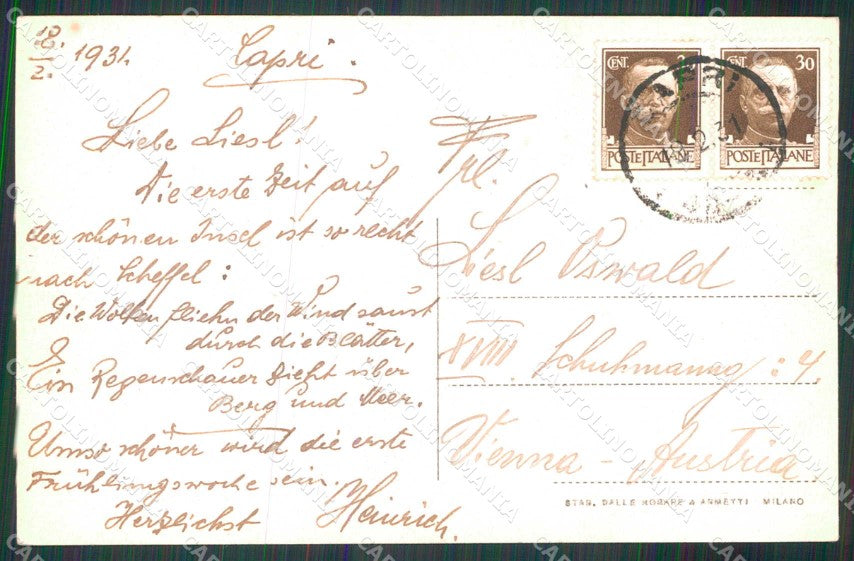 18./2. 1931. Capri.
Liebe Liesl!
Die erste Zeit auf
der schönen Insel ist so recht
nach Scheffel:
Die Wolken fliehn der Wind saust
durch die Blätter,
Ein Regenschauer zieht über
Berg und Meer.
Umso schöner wird die erste
Frühlingswoche sein.
Herzlichst Heinrich.
CENT. 30
POSTE ITALIANE
CENT. 30
POSTE ITALIANE
CAPRI
18.2.31
Frl.
Liesl Oswald
XVIII. Schuhmanng: 4.
Vienna - Austria
STAB. DALLE NOGARE & ARMETTI MILANO
CARTOLINOMANIA